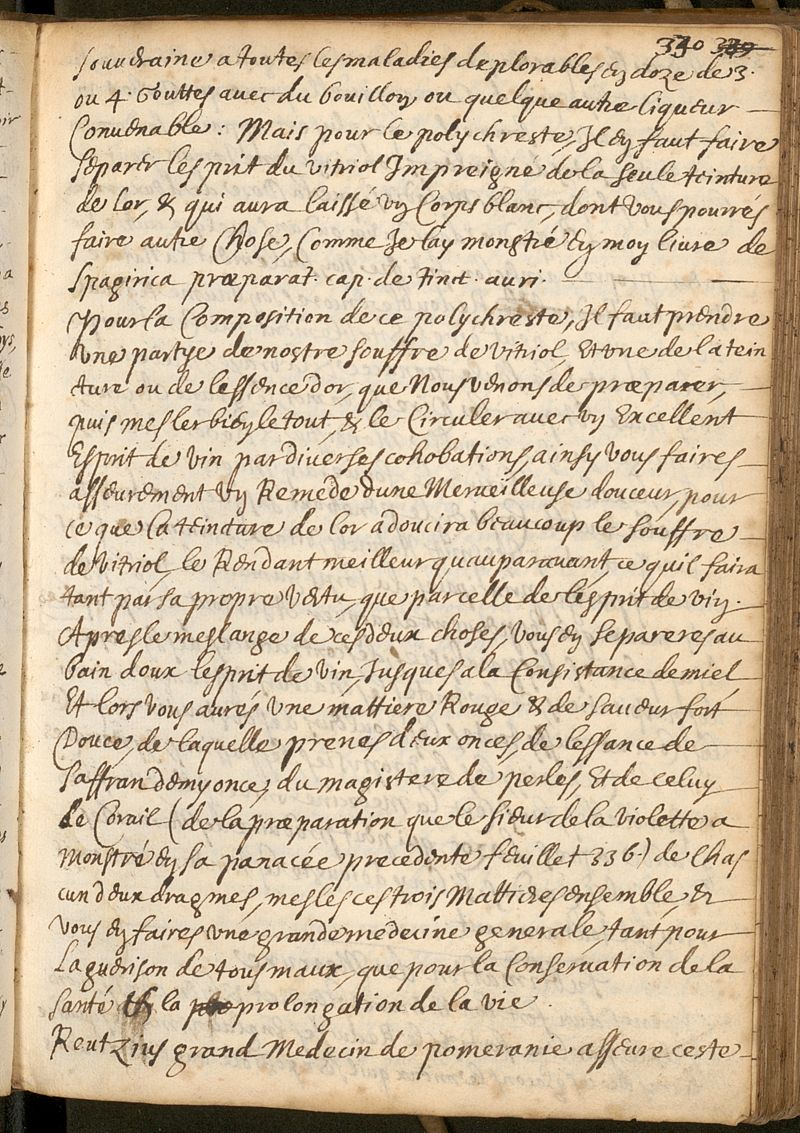 330 339
souueraine a toutes les maladies deplorables en doze de 3.
ou 4. Gouttes avec du bouillon ou quelque autre liqueur
Conuenable: Mais pour le polychreste, Il en faut faire
separer lesprit du vitriol Impreigné de la seule teinture
de lor, & qui aura laissé vn Corps blanc, dont vous pourrés
faire autre Chose, Comme Je lay monstré en moy liure de
Spagirica præparat. cap. de tinct. auri.
Pour la Composition de ce polychreste, Il faut prendre
vne partye de nostre souffre de vitriol, Et vne de la tein
ture ou de lessence dor, que Nous venons de præparer,
puis mesler bien le tout, & le Circuler avec vn Excellent
Esprit de vin par diverses cohobations, ainsy vous faires
asseurement vn Remede dune Merveilleuse douceur, pour
ce que la teinture de lor adoucira beaucoup le souffre
de vitriol, le Rendant meilleur quauparavant, ce quil faira
tant par sa propre vertu, que par celle de lesprit de vin.
Apres le meslange de ces deux choses, vous en separeres au
bain doux lesprit de vin, Jusques a la Consistance de miel
Et lors vous aurés vne mattiere Rouge & de saueur fort
Douce, de laquelle prenes deux onces, de lessance de
saffran demy once, du magistere de perles, Et de celuy
de Corail (de la præparation que le sieur de la violette a
monstré en sa panacée precedente feuillet 336.) de Chas
cun deux dragmes, mesles ces trois Mattieres ensemble, &
vous en faires vne grande medecine generale, tant pour
La guerison de tous maux, que pour la Conservation de la
santé & la prolongation de la vie.
Reutzius grand Medecin de pomeranie asseure ceste